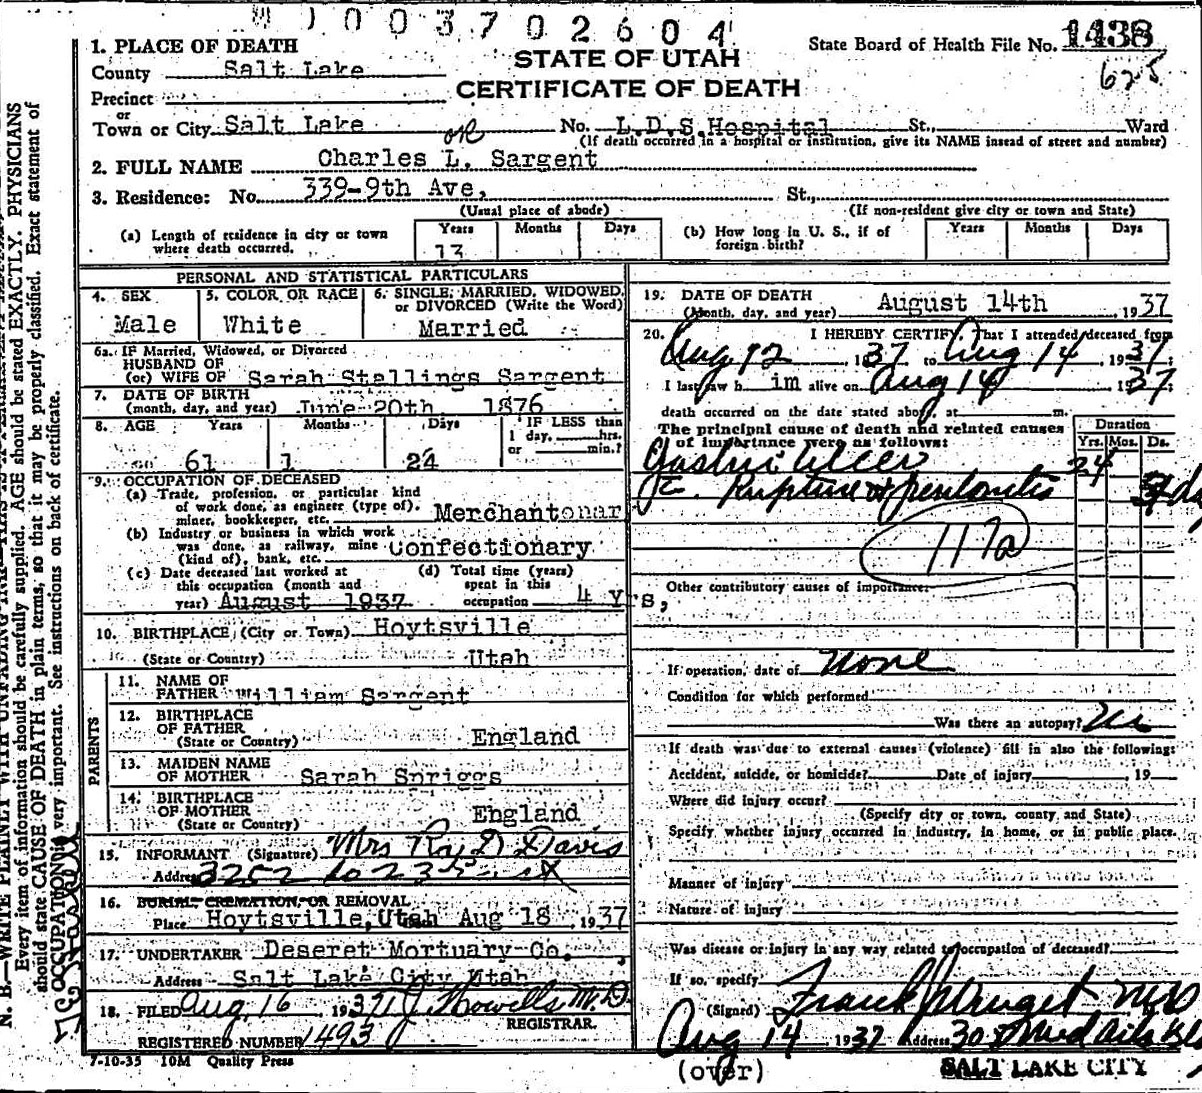 003702604
1438
625
State Board of Health File No.
STATE OF UTAH
CERTIFICATE OF DEATH
1. PLACE OF DEATH
County Salt Lake
Precinct
or
Town or City Salt Lake or No. L.D.S.Hospital St., Ward
(If death occurred in a hospital or institution, give its NAME insead of street and number)
2. FULL NAME Charles L. Sargent
3. Residence: No. 339-9th Ave, St.,
(Usual place of abode) (If non-resident give city or town and State)
(a) Length of residence in city or town where death occurred. Years 13 Months Days (b) How long in U. S., if of foreign birth? Years Months Days
PERSONAL AND STATISTICAL PARTICULARS
4. SEX 5. COLOR OR RACE 6. SINGLE, MARRIED, WIDOWED, or DIVORCED (Write the Word)
Male White Married
6a. IF Married, Widowed, or Divorced
HUSBAND OF
(or) WIFE OF Sarah Stallings Sargent
7. DATE OF BIRTH
(month, day, and year) June 20th 1876
8. AGE Years Months Days IF LESS than
1 day, hrs.
or min.?
61 1 24
9. OCCUPATION OF DECEASED
(a) Trade, profession, or particular kind
of work done, as engineer (type of),
miner, bookkeeper, etc. Merchantonar
(b) Industry or business in which work
was done, as railway, mine
(kind of), bank, etc. Confectionary
(c) Date deceased last worked at
this occupation (month and
year) August 1937
(d) Total time (years)
spent in this
occupation 4 yrs,
10. BIRTHPLACE (City or Town) Hoytsville
(State or Country) Utah
PARENTS
11. NAME OF
FATHER William Sargent
12. BIRTHPLACE
OF FATHER
(State or Country) England
13. MAIDEN NAME
OF MOTHER Sarah Spriggs
14. BIRTHPLACE
OF MOTHER
(State or Country) England
15. INFORMANT (Signature) Mrs Ray D Davis
Address 3252 So 23 East
16. BURIAL, CREMATION, OR REMOVAL
Place Hoytsville, Utah Aug 18, 1937
17. UNDERTAKER Deseret Mortuary Co.
Address Salt Lake City Utah
18. FILED Aug. 16 1937 J Howells M.D
REGISTRAR.
REGISTERED NUMBER 1493
7-10-35 10M Quality Press
19. DATE OF DEATH
(Month, day, and year) August 14th, 1937
20. I HEREBY CERTIFY, That I attended deceased from
Aug 12 1937 to Aug 14 1937
I last saw h im alive on Aug 14 1937
death occurred on the date stated above, at m.
The principal cause of death and related causes
of importance were as follows:
Duration
Yrs. Mos. Ds.
Gastric Ulcer 24
c. Rupture & peritonitis
117a
Other contributory causes of importance:
If operation, date of None
Condition for which performed
Was there an autopsy? No
If death was due to external causes (violence) fill in also the following:
Accident, suicide, or homicide? Date of injury , 19
Where did injury occur?
(Specify city or town, county and State)
Specify whether injury occurred in industry, in home, or in public place.
Manner of injury
Nature of injury
Was disease or injury in any way related to occupation of deceased?
If so, specify
(Signed)
Aug 14, 1937 Address
(over) SALT LAKE CITY
Every item of information should be carefully supplied. AGE should be stated EXACTLY. PHYSICIANS
should state CAUSE OF DEATH in plain terms, so that it may be properly classified. Exact statement of
OCCUPATION is very important. See instructions on back of certificate.